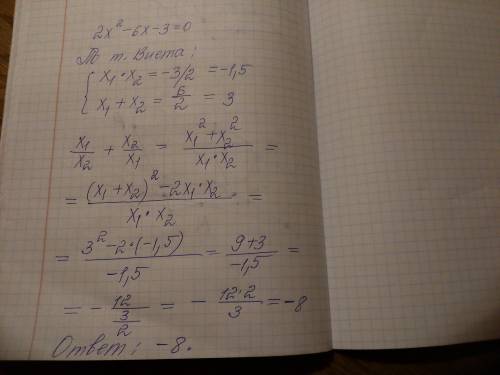 2x² - 6x - 3 = 0
По т. Виета:
{ x₁ · x₂ = -3/2 = -1,5
x₁ + x₂ = 6/2 = 3
x₁/x₂ + x₂/x₁ = (x₁² + x₂²)/(x₁ · x₂) =
= ((x₁ + x₂)² - 2x₁ · x₂)/(x₁ · x₂) =
= (3² - 2 · (-1,5))/(-1,5) = (9 + 3)/(-1,5) =
= - 12/(3/2) = - (12 · 2)/3 = -8
Ответ: -8.